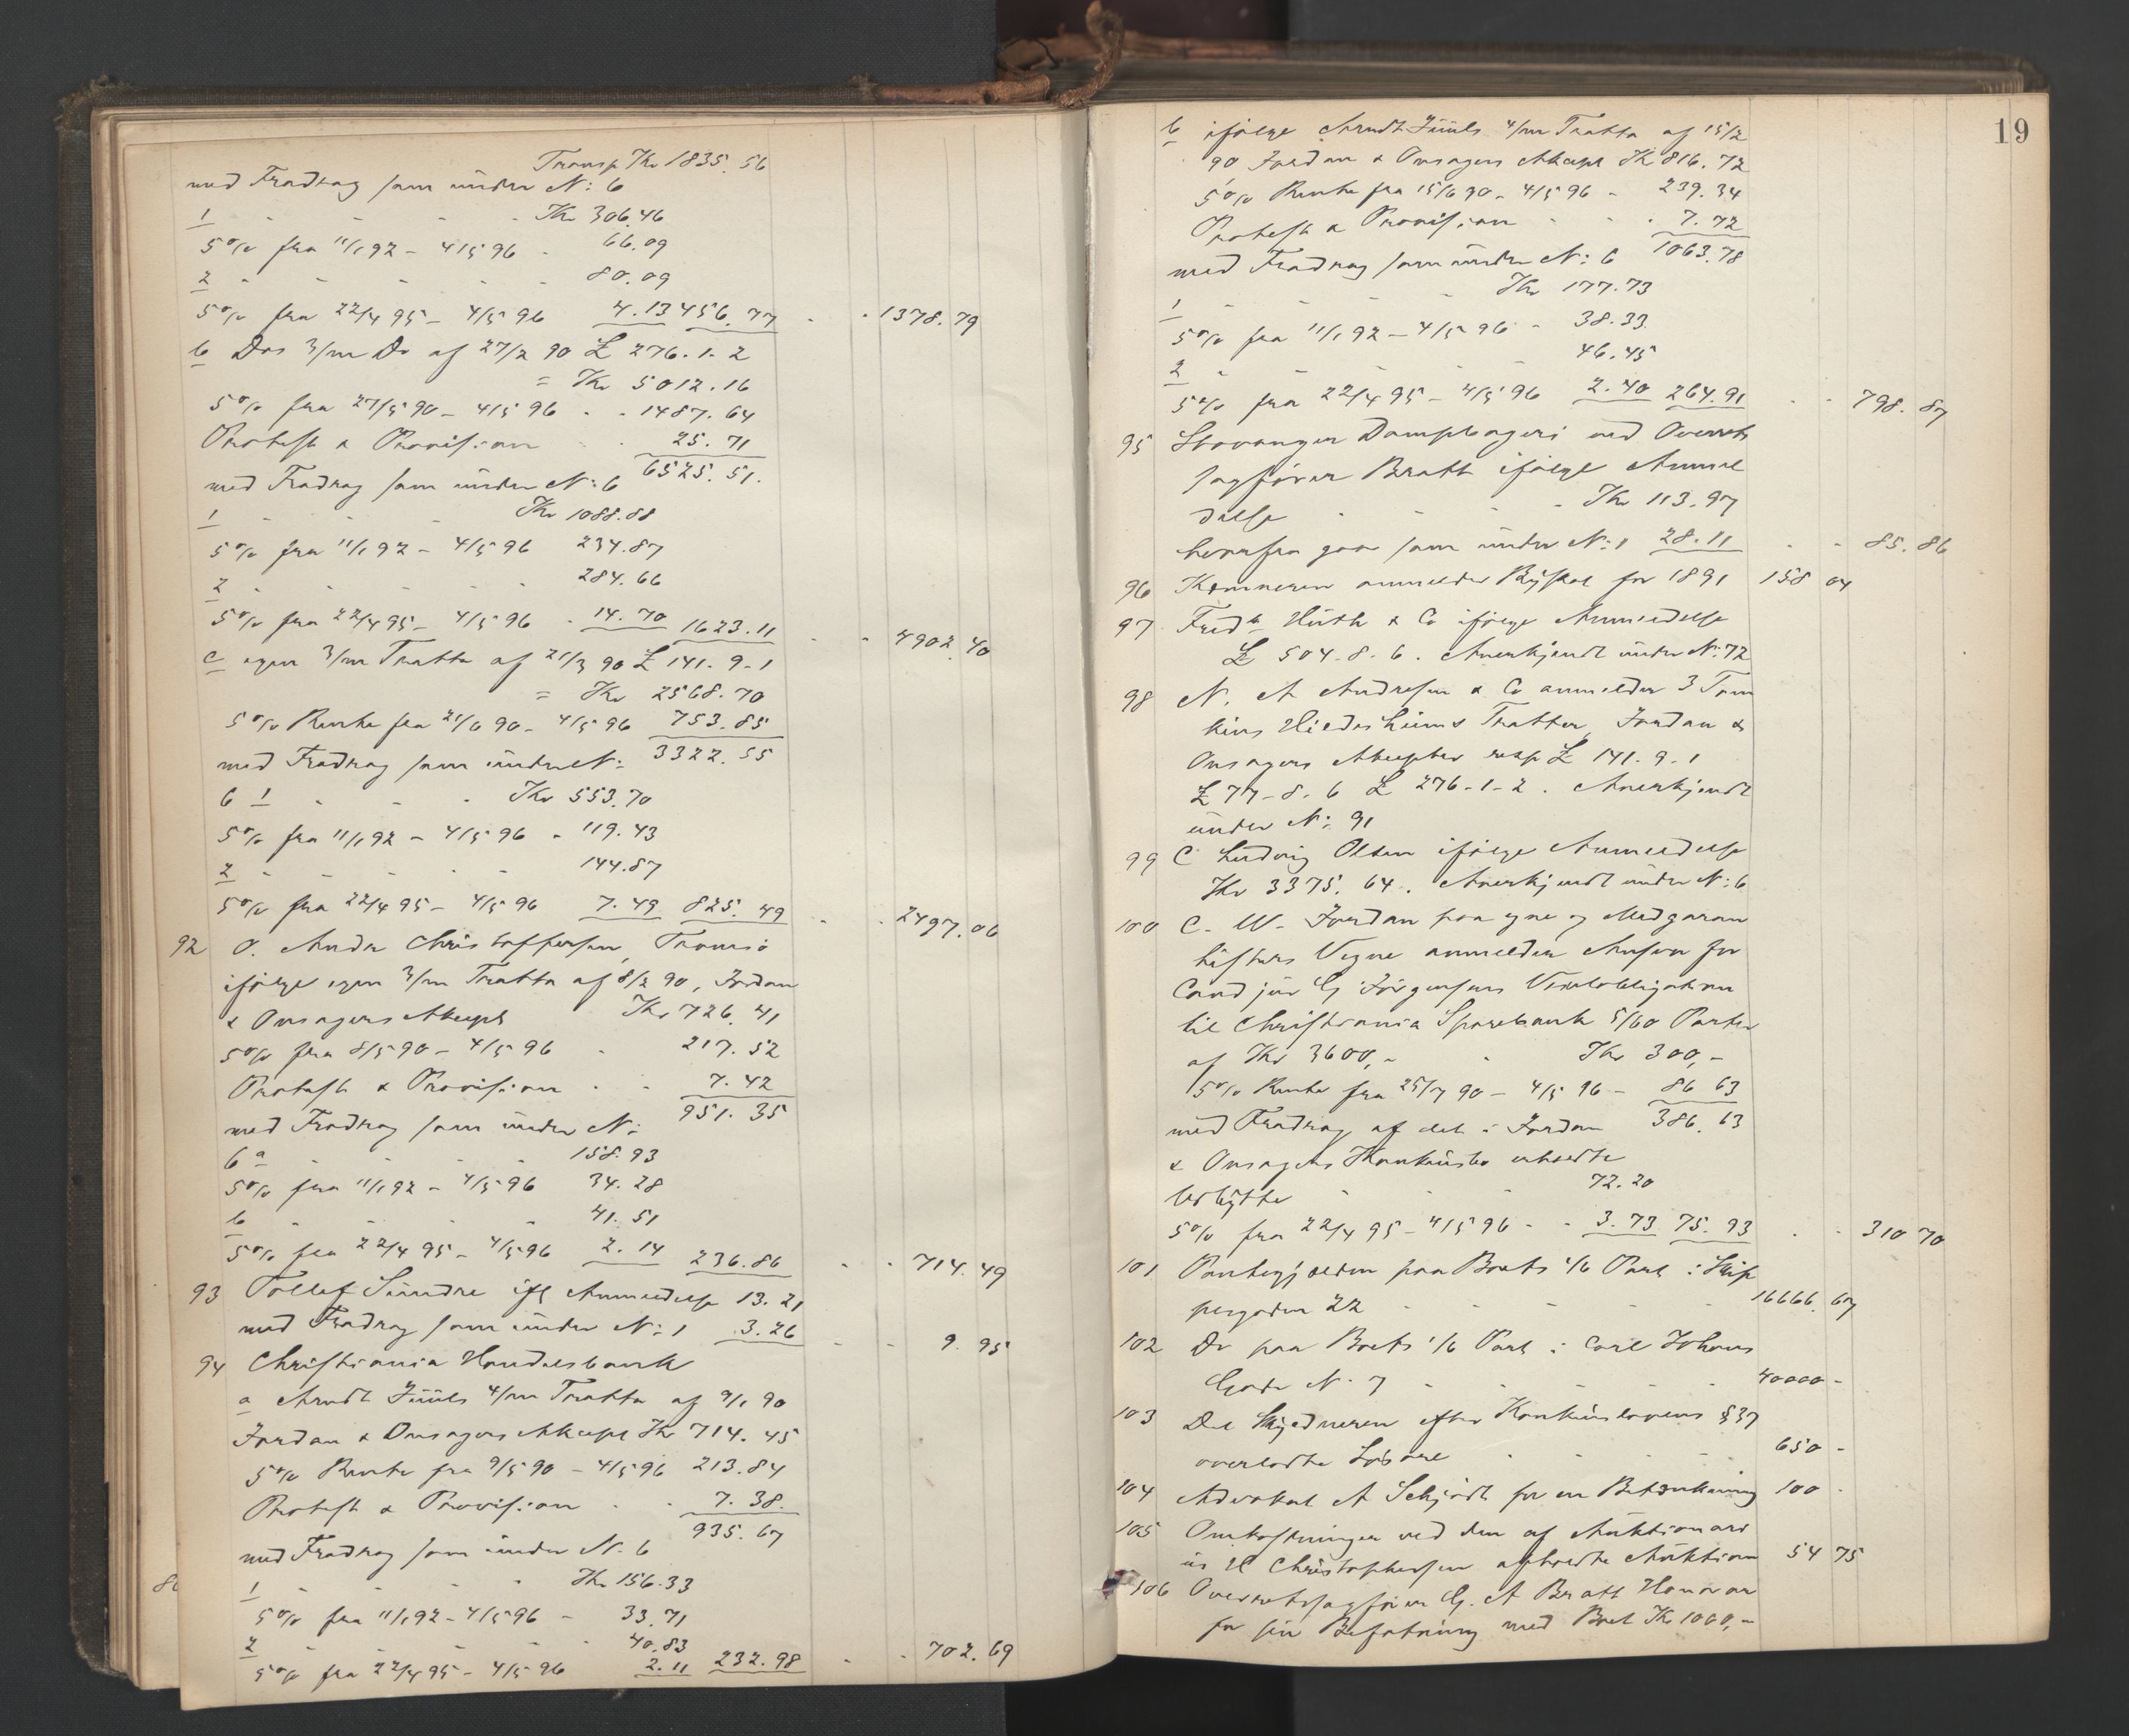 Transp Kr 1835.56
med Fradrag som under N: 6
1 - - - - Kr 306.46
5% fra 11/1 92 - 4/5 96 - 66.09
2 - - - - - 80.09
5% fra 22/4 95 - 4/5 96 4.13 456.77 - - 1378.79
b Dos 3/m Do af 27/2 90 £ 276.1.2
= Kr 5012.16
5% fra 27/5 90 - 4/5 96 - - 1487.64
Protest & Provision - - 25.71
6525.51.
med Fradrag som under N: 6
1 - - - Kr 1088.88
5% fra 11/1 92 - 4/5 96 234.87
2 - - - - - 284.66
5% fra 22/4 95 - 4/5 96 - 14.70 1623.11 - - 4902.40
c egen 3/m Tratta af 21/3 90 £ 141-9-1
= Kr 2568.70
5% Rente fra 21/6 90 - 4/5 96 753.85
3322.55
med Fradrag som under N:
6 1 - - - Kr 553.70
5% fra 11/1 92 - 4/5 96 - 119.43
2 - - - - - 144.87
5% fra 22/4 95 - 4/5 96 7.49 825.49 - - 2497.06
92 O. Andr Christoffersen, Tromsö
ifölge egen 3/m Tratta af 8/2 90, Jordan
& Onsagers Akcept Kr 726.41
5% fra 8/5 90 - 4/5 96 - 217.52
Protest & Provision - - 7.42
951.35
med Fradrag som under N:
6 a - - - - 158.93
5% fra 11/1 92 - 4/5 96 34.28
b - - - - 41.51
5% fra 22/4 95 - 4/5 96 2.14 236.86 - - 714.49
93 Tollef Sundre ifl Anmeldelse 13.21
med Fradrag som under N: 1 3.26 - - 9.95
94 Christiania Handelsbank
a Arndt Juuls 4/m Tratta af 9/1 90
Jordan & Onsagers Akcept Kr 714.45
5% Rente fra 9/5 90 - 4/5 96 213.84
Protest & Provision - - 7.38.
935.67
med Fradrag som under N. 6
1 - - - - Kr 156.33
5% fra 11/1 92 - 4/5 96 - 33.71
2 - - - - - 40.83
5% fra 22/4 95 - 4/5 96 2.11 232.98 - - 702.69
19
b ifölge Arndt Juuls 4/m Tratta af 15/2
90 Jordan & Onsagers Akcept Kr 816.72
5% Rente fra 15/6 90 - 4/5 96 - 239.34
Protest & Provision - - - 7.72
1063.78
med Fradrag som under N: 6
Kr 177.73
1 - - - -
5% fra 11/1 92 - 4/5 96 - 38.33
2 - - - - - 46.45
5% fra 22/4 95 - 4/5 96 2.40 264.91 - - 798.87
95 Stavanger Dampbageri ved Overrets
sagförer Bratt ifölge Anmel
delse - - - - Kr 113.97
herfra gaar som under N: 1 28.11 - - 85.86
96 Kemneren anmelder Byskat for 1891 158 04
97 Fredk Huth & Co ifölge Anmeldelse
£ 504-8-6. Anerkjendt under N: 72
98 N. A Andresen & Co anmelder 3 Tom
kins Hildesheims Tratter, Jordan &
Onsagers Akcepter resp £ 141.9.1
£ 77-8-6 £ 276-1-2. Anerkjendt
under N: 91
99 C Ludvig Olsen ifölge Anmeldelse
Kr 3375.64. Anerkjendt under N: 6
100 C. W. Jordan paa egne og Medgaran
tisters Vegne anmelder Ansvar for
Cand jur G Jörgensens Vexelobligation
til Christiania Sparebank 5/60 Parter
af Kr 3600,- - Kr 300,-
5% Rente fra 25/7 90 - 4/5 96 - 86 63
386.63
med Fradrag af det i Jordan
& Onsagers Konkursbo erholdte
Udbytte - - - 72.20
5% fra 22/4 95 - 4/5 96 - - 3.73 75.93 - - 310 70
101 Pantegjælden paa Boets 1/6 Part i Skip
pergaden 22 - - - - - 16666.67
102 Do paa Boets 1/6 Part i Carl Johans
Gade N. 7 - - - - - 40000 -
103 Det Skyldneren efter Konkurslovens § 37
overladte Lösöre - - - - 650 -
104 Advokat A Schjödt for en Betænkning 100 -
105 Omkostninger ved den af Auktionari
us H Christophersen afholdte Auktion 54 75
106 Overretssagförer G. A Bratt Honorar
for sin Befatning med Boet Kr 1000,-